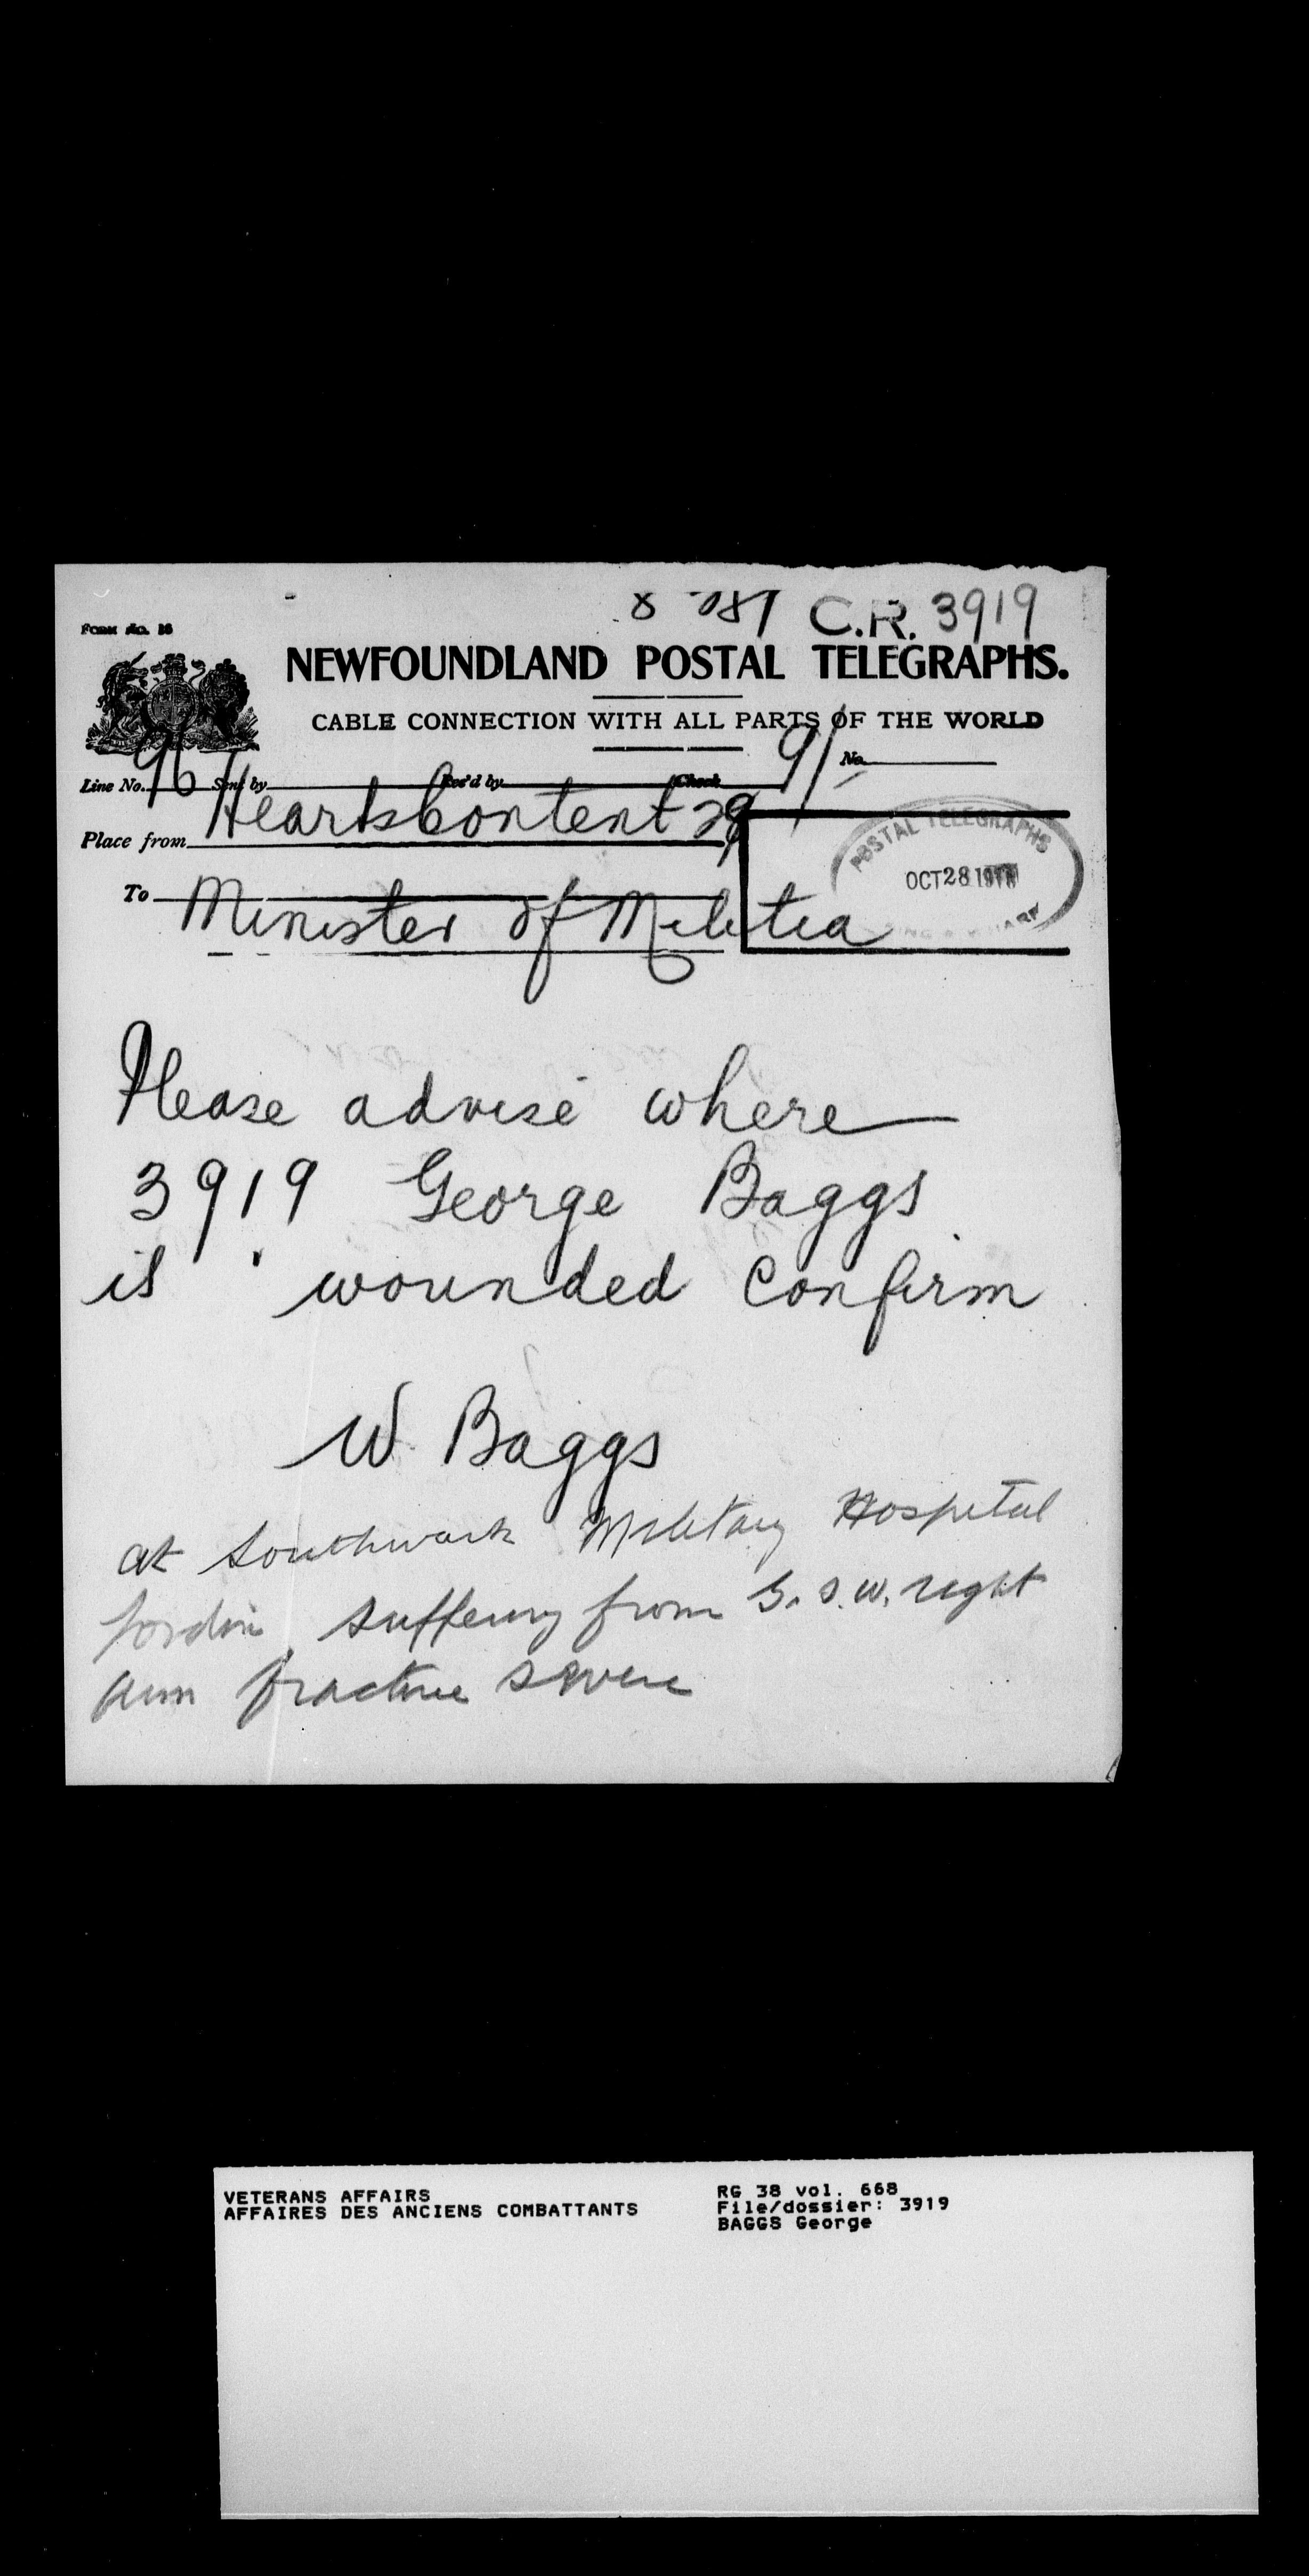 C.R. 3919
NEWFOUNDLAND POSTAL TELEGRAPHS.
CABLE CONNECTION WITH ALL PARTS OF THE WORLD
Line No. 96 Sent by Rec'd by Check 91 No.
Place from Heartscontent 28
To Minister of Militia
POSTAL TELEGRAPHS
OCT 28
Please advise where
3919 George Baggs
is wounded Confirm
W. Baggs
at Southwark Military Hospital
London suffering from G.S.W. right
arm fracture severe
VETERANS AFFAIRS
AFFAIRES DES ANCIENS COMBATTANTS
RG 38 vol. 668
File/dossier: 3919
BAGGS George